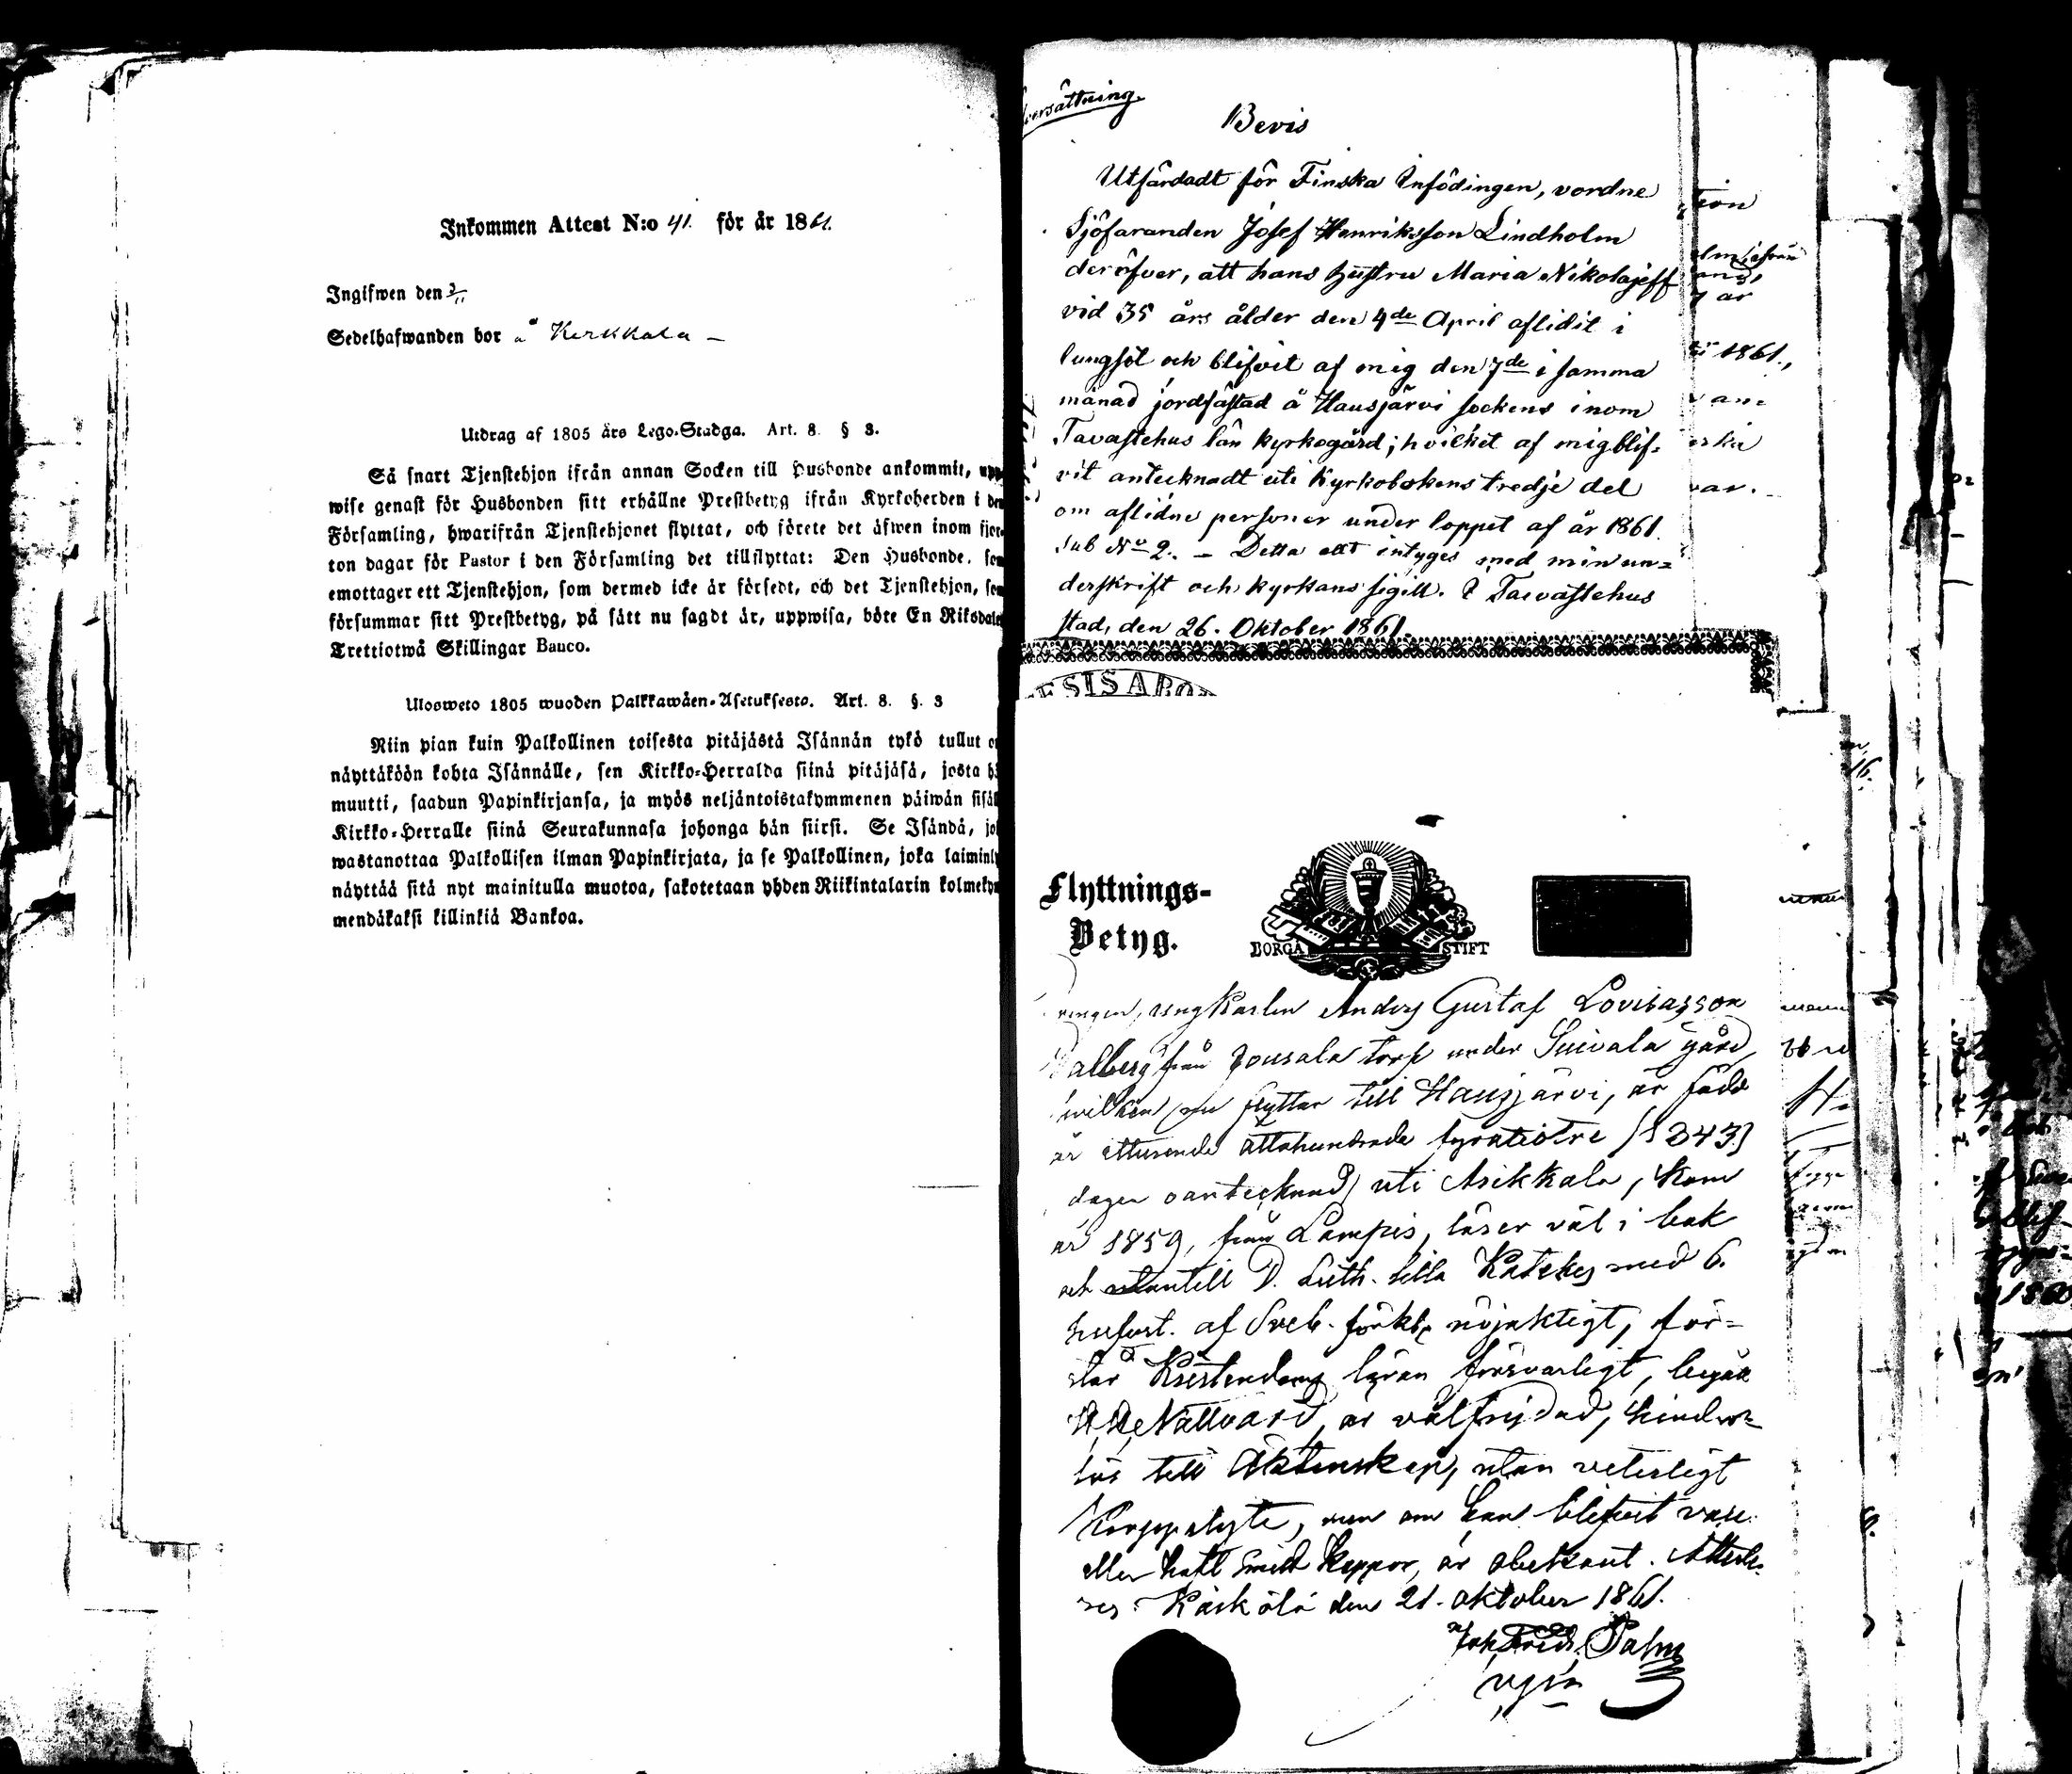 Inkommen Attest N:o 41. för år 1861.
Ingifwen den 3/11
Sedelhafwanden bor å Kerkkala –
Utdrag af 1805 års Lego-Stadga. Art. 8. § 3.
Så snart Tjenstehjon ifrån annan Socken till Husbonde ankommit, upp-
wise genast för Husbonden sitt erhållne Prestbetyg ifrån Kyrkoherden i den
Församling, hwarifrån Tjenstehjonet flyttat, och förete det äfwen inom fjor-
ton dagar för Pastor i den Församling det tillflyttat: Den Husbonde, som
emottager ett Tjenstehjon, som dermed icke är försedt, och det Tjenstehjon, som
försummar sitt Prestbetyg, på sätt nu sagdt är, uppwisa, böte En Riksdaler
Trettiotwå Skillingar Banco.
Ulosweto 1805 wuoden Palkkawäen-Asetuksesta. Art. 8. §. 3
Niin pian kuin Palkollinen toisesta pitäjästä Isännän tykö tullut on
näyttäköön kohta Isännälle, sen Kirkko-Herralda siinä pitäjäsä, josta hä
muutti, saadun Papinkirjansa, ja myös neljäntoistakymmenen päiwän sisäl
Kirkko-Herralle siinä Seurakunnasa johonga hän siirsi. Se Isändä, jo
wastanottaa Palkollisen ilman Papinkirjata, ja se Palkollinen, joka laiminly
näyttää sitä nyt mainitulla muotoa, sakotetaan yhden Riikintalarin kolmeky
mendäkaksi killinkiä Bankoa.
versättning.
Bevis
Utfärdadt för Finska Infödingen, vordne
Sjöfaranden Josef Henriksson Lindholm
deröfver, att hans hustru Maria Nikolajeff
vid 35 års ålder den 4de April aflidit i
lungsot och blifvit af mig den 7de i samma
månad jordfästad å Hausjärvi sockens inom
Tavastehus län kyrkogård; hvilket af mig blif-
vit antecknadt uti Kyrkobokens tredje del
om aflidne personer under loppet af år 1861.
sub No 2. – Detta allt intyges med min un-
derskrift och kyrkans sigill. I Tavastehus
stad, den 26. Oktober 1861.
ESIS ABO
Flyttnings-
Betyg.
BORGÅ STIFT
ungkarlen Anders Gustaf Lovisasson
från Jousala torp under Suivala gård,
nu flyttar till Hausjärvi, är född
år ettusende åttahundrade fyratiotre (1843)
dagen oantecknad, uti Asikkala, kom
år 1859, från Lampis, läser väl i bok
och utantill D. Luth. lilla Katekes med 6.
hufvst. af Sveb. förklg nöjaktigt, för-
står Kristendoms läran försvarligt, begår
H. H. Nattvard, är välfrejdad, hinder-
lös till Äktenskap, utan veterligt
Kroppslyte, men om han blifvit vacc.
eller haft smitt koppor, är obekant. Atteste-
res. Kärkölä den 21. oktober 1861.
Joh. Fredr. Palm